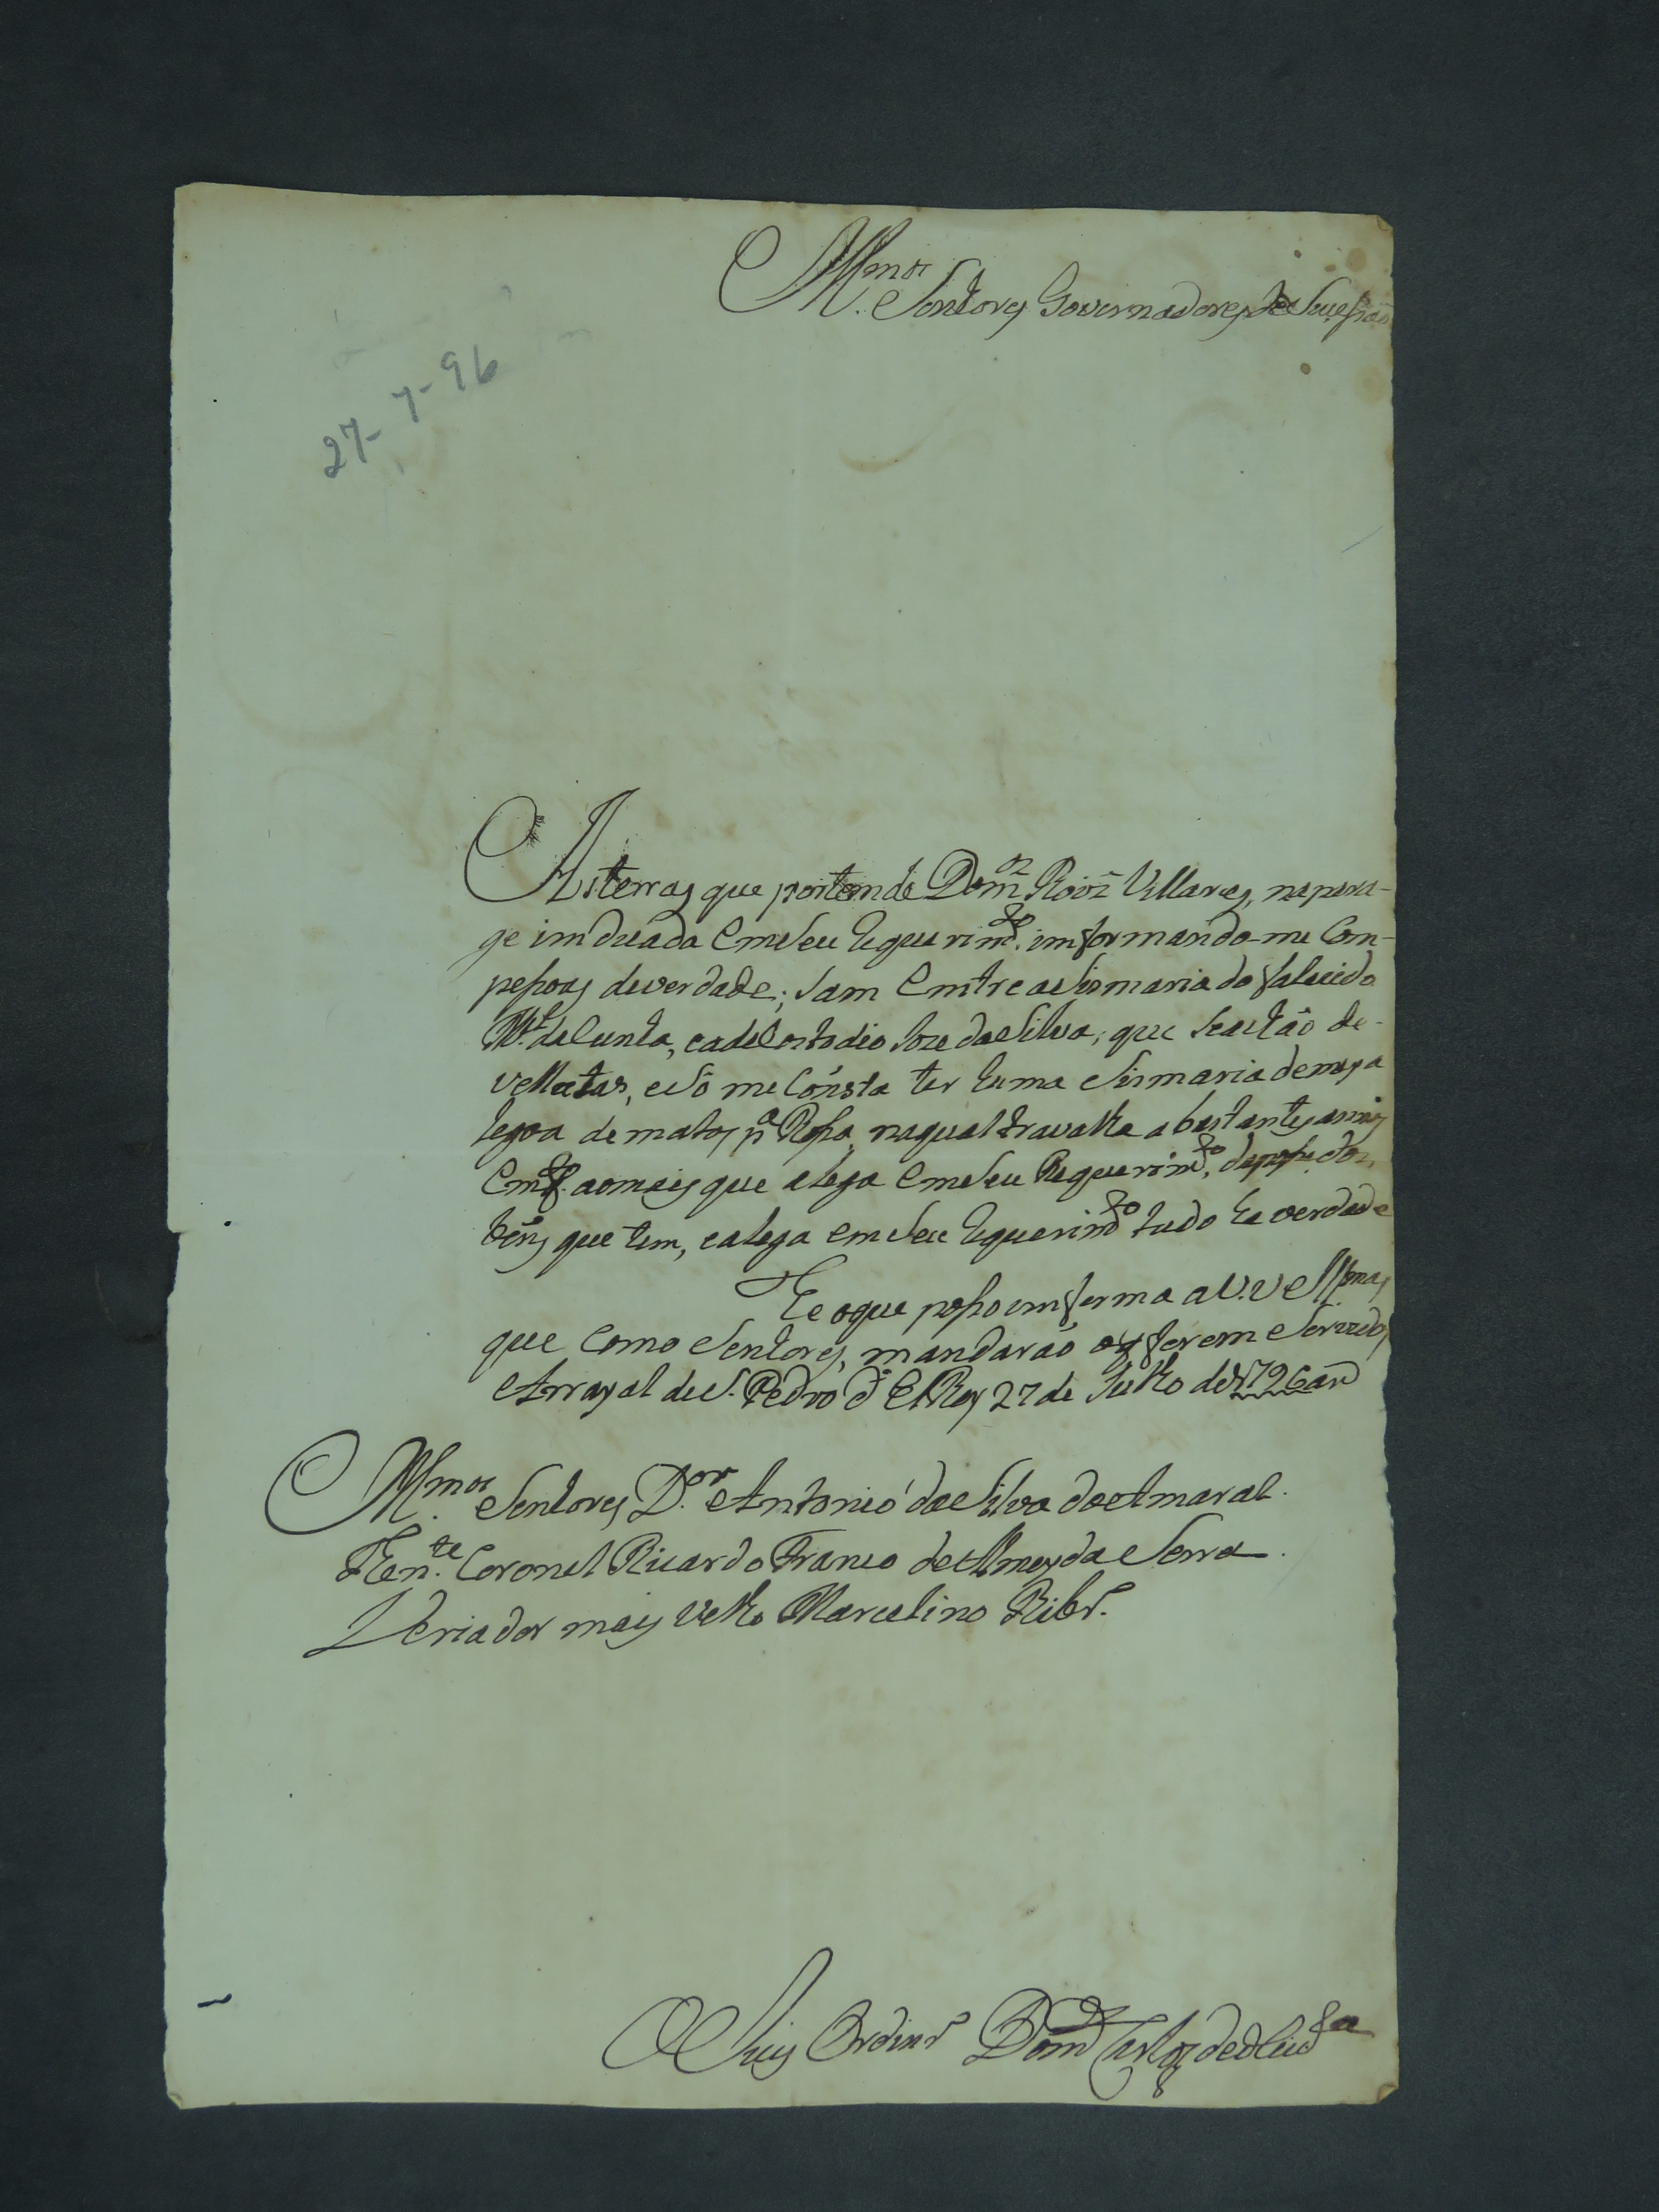 Illmos
Senhores Governadores de Sucessão
27-7-96
As terras que pertende Domos Roiz Villares, napara-
ge induada Em seu Requerimto. imformando-me Com
pessoas deverdade; sam Emtre a Sismaria do falecido
Ml. da Cunha, eade Costodio Joze da Silva; que
eSó me Cónsta ter huma Sismaria demeya
legoa de matos pa. Rossa, naqual travalha a bastantes annos
aomais que alega Em Seu Requerimto.
béns que tem, ealega em Seu Requerimto tudo he verdade
He oque posso imforma a V.V. Illmas
que Como Senhores, mandarão oq forem Servidos
Arrayal de S. Pedro d' El Rey 27 de Julho de 1796 an
Illmos Senhores Dor. Antonio da Silva do Amaral.
Tente. Coronel Ricardo Franco de Almeyda Serra.
Veriador mais velho Marcelino Ribr.
O Juis Ordinr Domos Carlos de